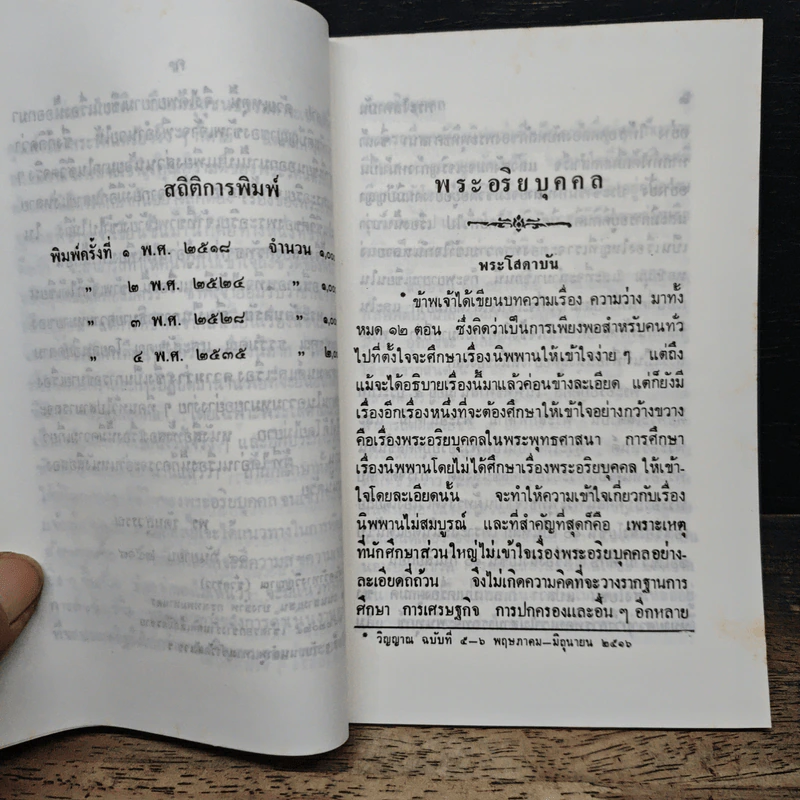 สถิติการพิมพ์
พิมพ์ครั้งที่ ๑ พ.ศ. ๒๕๑๘ จำนวน ๑,๐๐
" ๒ พ.ศ. ๒๕๒๔ " ๑,๐๐
" ๓ พ.ศ. ๒๕๒๘ " ๑,๐๐
" ๔ พ.ศ. ๒๕๓๕ " ๒,๐
พระอริยบุคคล
พระโสดาบัน
* ข้าพเจ้าได้เขียนบทความเรื่อง ความว่าง มาทั้ง
หมด ๑๒ ตอน ซึ่งคิดว่าเป็นการเพียงพอสำหรับคนทั่ว
ไปที่ตั้งใจจะศึกษาเรื่องนิพพานให้เข้าใจง่าย ๆ แต่ถึง
แม้จะได้อธิบายเรื่องนี้มาแล้วค่อนข้างละเอียด แต่ก็ยังมี
เรื่องอีกเรื่องหนึ่งที่จะต้องศึกษาให้เข้าใจอย่างกว้างขวาง
คือเรื่องพระอริยบุคคลในพระพุทธศาสนา การศึกษา
เรื่องนิพพานโดยไม่ได้ศึกษาเรื่องพระอริยบุคคล ให้เข้า-
ใจโดยละเอียดนั้น จะทำให้ความเข้าใจเกี่ยวกับเรื่อง
นิพพานไม่สมบูรณ์ และที่สำคัญที่สุดก็คือ เพราะเหตุ
ที่นักศึกษาส่วนใหญ่ไม่เข้าใจเรื่องพระอริยบุคคลอย่าง-
ละเอียดถี่ถ้วน จึงไม่เกิดความคิดที่จะวางรากฐานการ
ศึกษา การเศรษฐกิจ การปกครองและอื่น ๆ อีกหลาย
* วิญญาณ ฉบับที่ ๕-๖ พฤษภาคม-มิถุนายน ๒๕๑๖